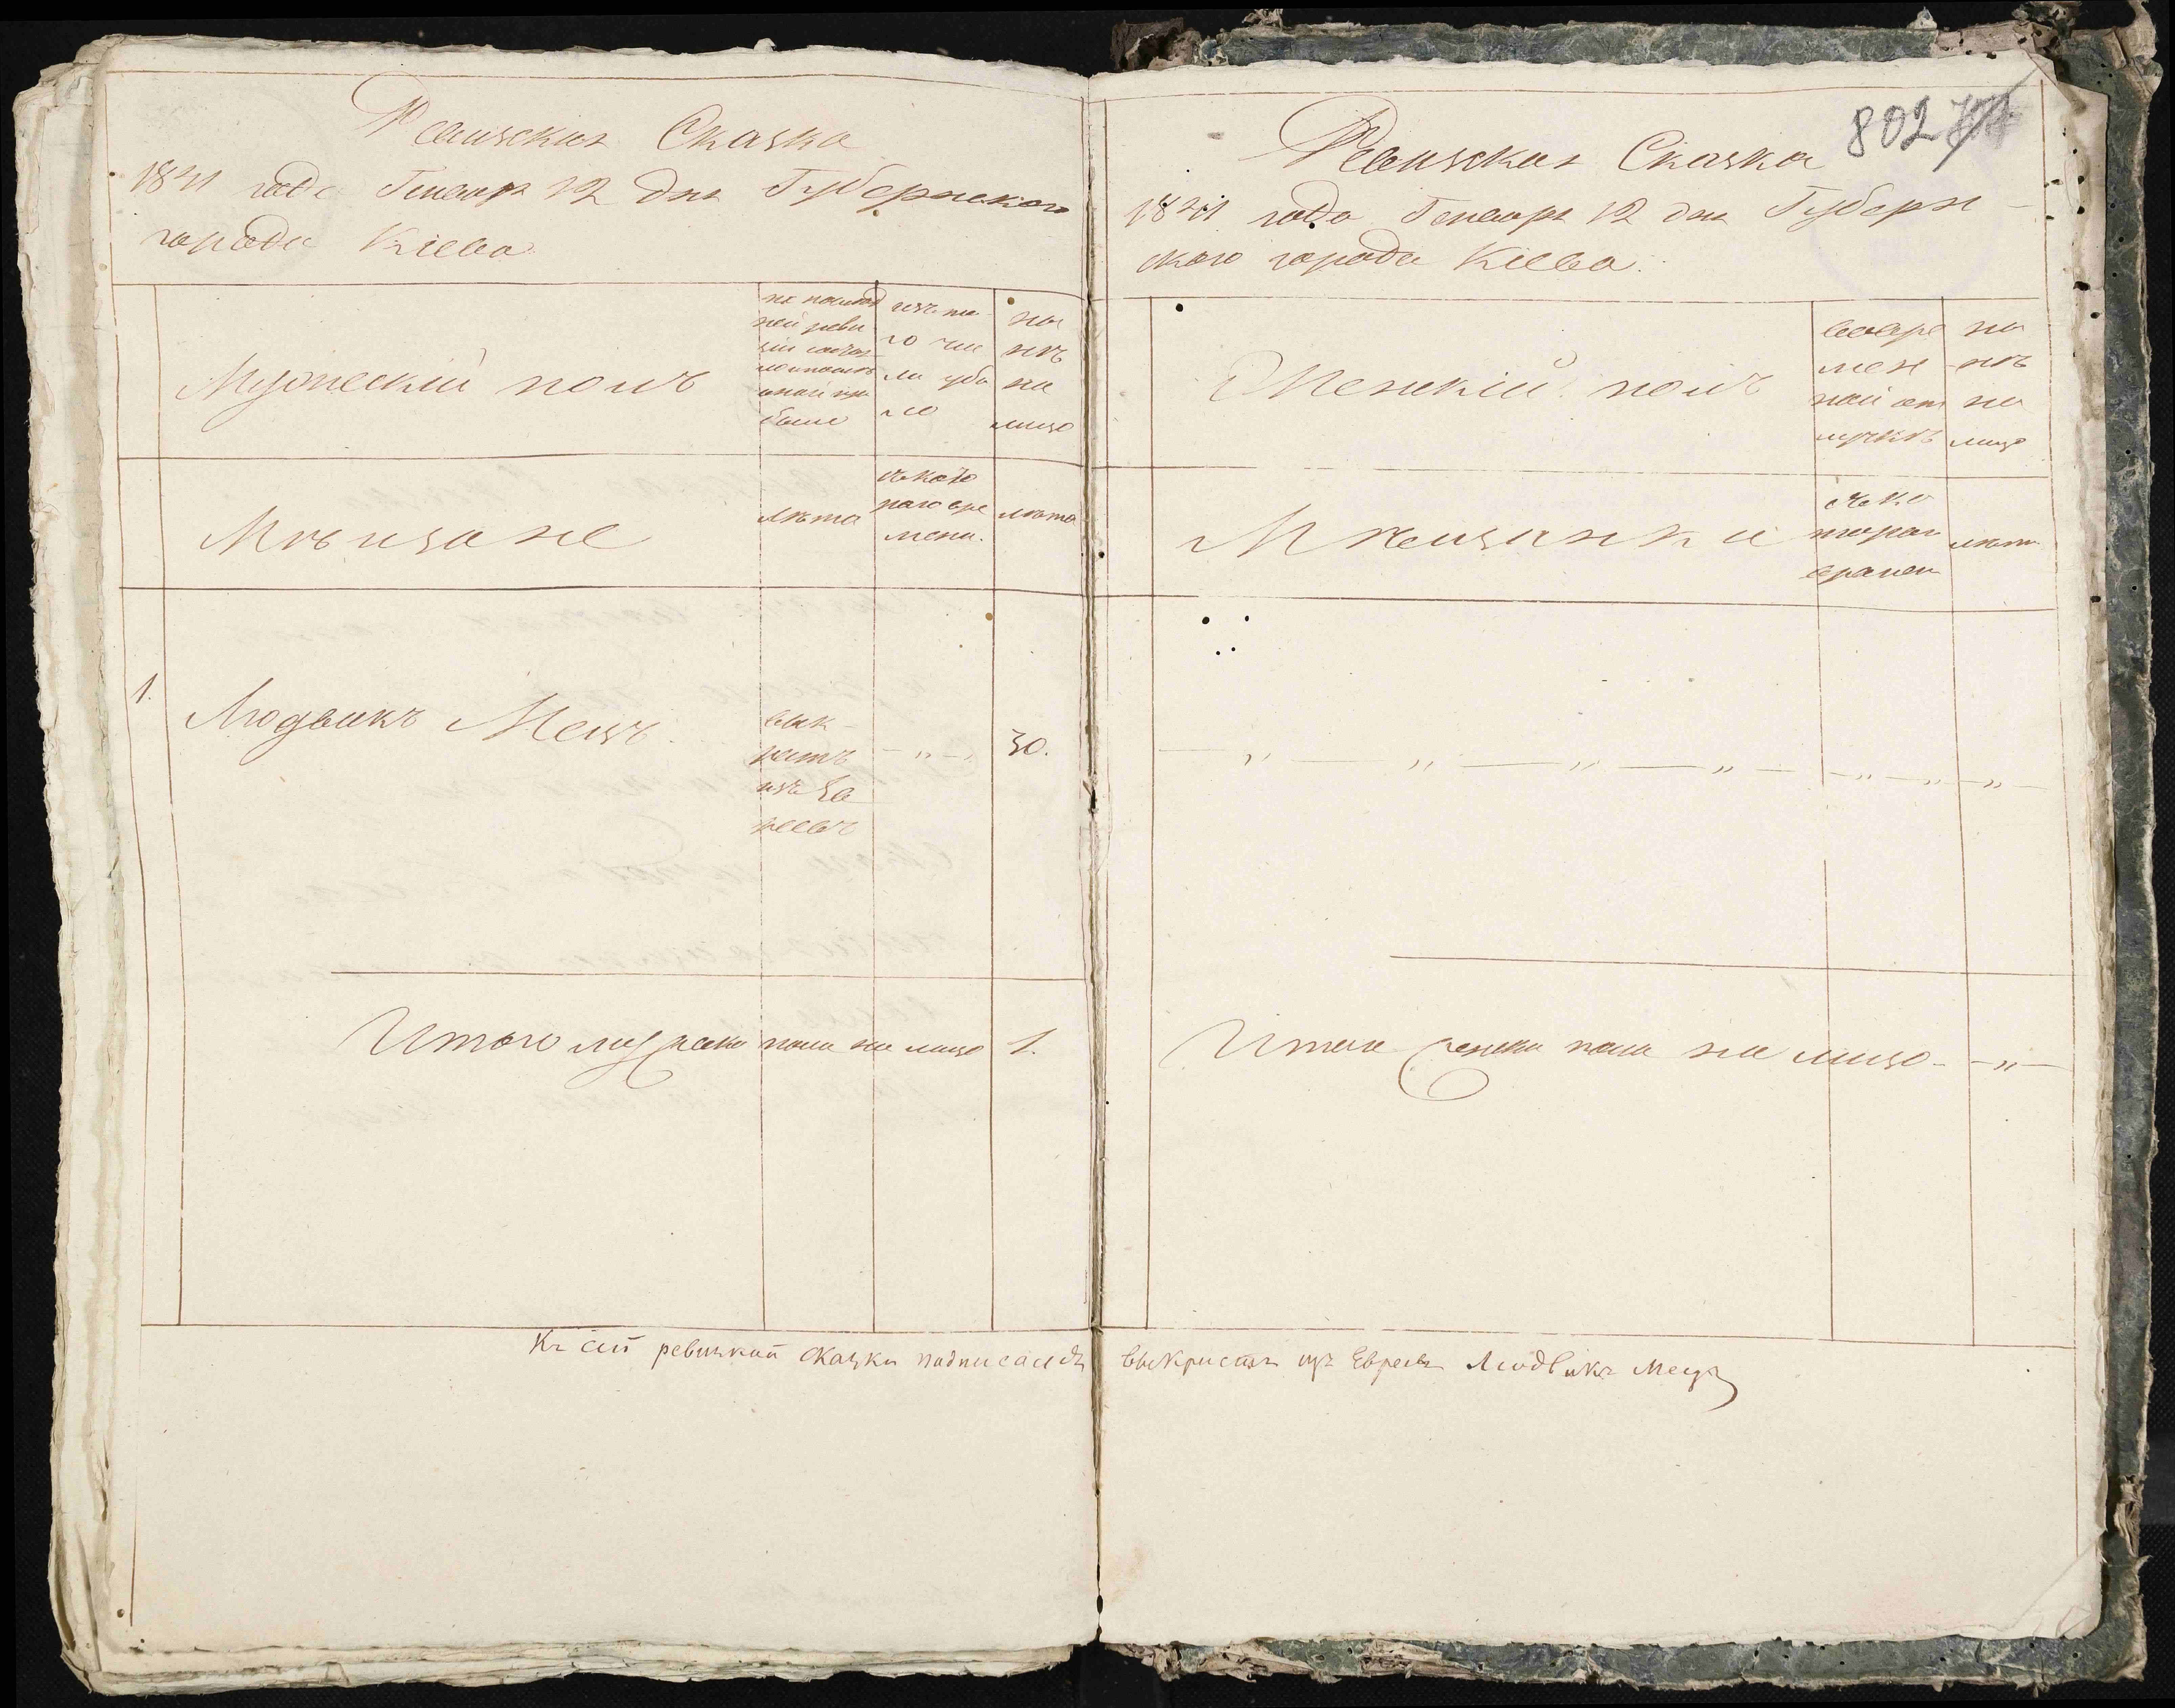 Ревизская Сказка
1841 года Генваря 12 дня Губернского
города Кіева
Мужескій полъ
по послед
ней реви
зіи состоя
ло и после
оной при
было
изъ то
го чис
ла убы
ло
ны
нѣ
на
лицо
Мѣщане
лѣта
съ кото
раго вре
мени.
лѣта
1.
Людвикъ Мецъ.
вык
рестъ
изъ Ев
реевъ
— „ —
30.
Итого мужеска пола на лицо 1.
802
Ревизская Сказка
1841 года Генваря 12 дня Губерн-
ского города Кіева.
Женскій полъ
во вре
мен
ной от
лучкѣ
ны
нѣ
на
лицо
Мѣщанки
съ ко
тораго
времен
лѣта
— „ — „ — „ — „ — — „ — „ — „ —
Итого женска пола на лицо — „ —
Къ сей ревизкой сказки подписался выкристъ изъ Евреевъ Людвикъ Мецъ